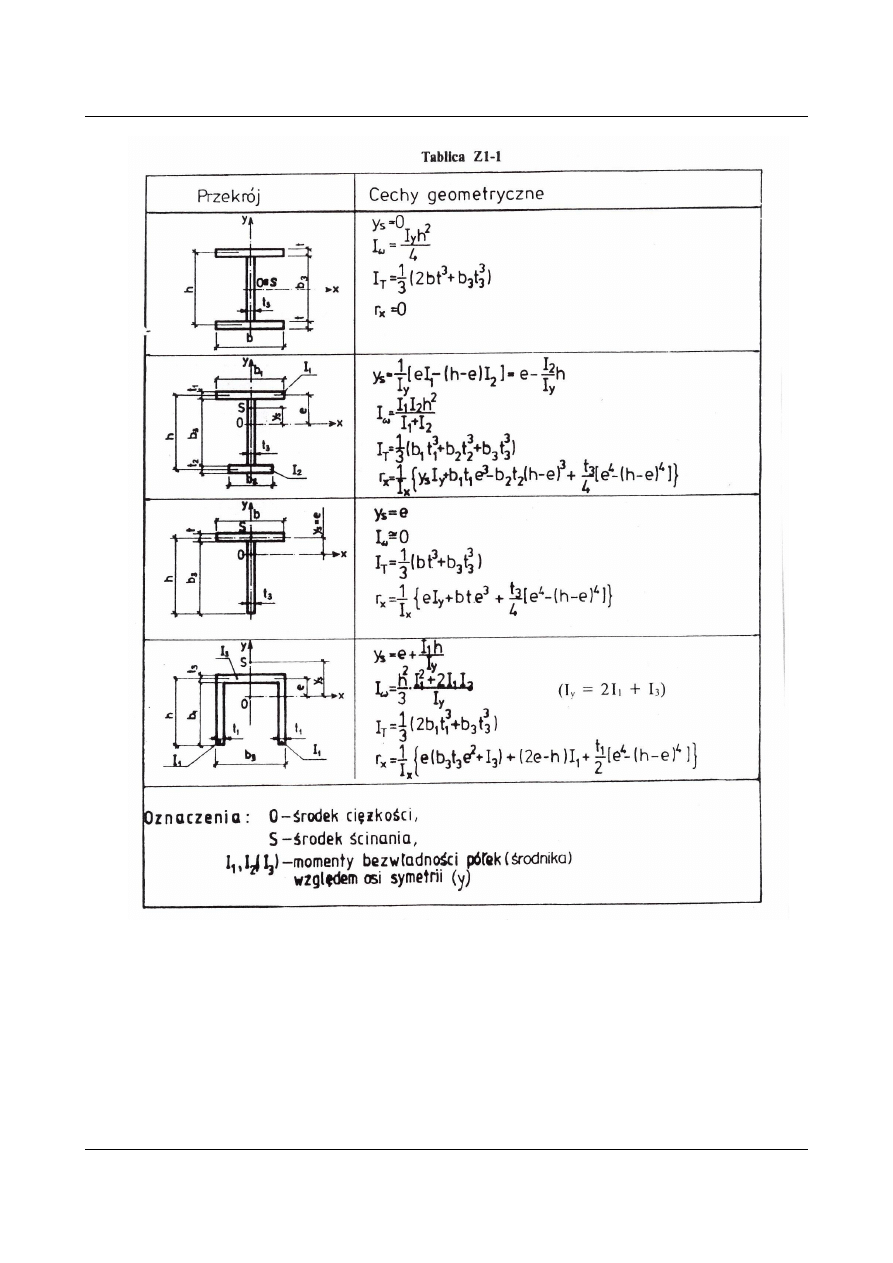 Tablica Z1-1
Przekrój
Cechy geometryczne
y
t
h
O≡S
b₃
x
t₃
t
b
yₛ=0
I_ω = I_y h²/4
I_T = 1/3 (2bt³+b₃t₃³)
rₓ=0
y
b₁
I₁
t₁
S
e
yₛ
O
x
h
b₃
t₃
t₂
I₂
b₂
yₛ = 1/I_y [eI₁-(h-e)I₂] = e - I₂/I_y h
I_ω = I₁I₂h²/I₁+I₂
I_T = 1/3 (b₁t₁³+b₂t₂³+b₃t₃³)
rₓ = 1/Iₓ {yₛI_y+b₁t₁e³-b₂t₂(h-e)³ + t₃/4 [e⁴-(h-e)⁴]}
y
b
S
t
yₛ=e
O
x
h
b₃
t₃
yₛ=e
I_ω≅0
I_T = 1/3 (bt³+b₃t₃³)
rₓ = 1/Iₓ {eI_y+bt.e³ + t₃/4 [e⁴-(h-e)⁴]}
I₃
y
S
t₃
e
yₛ
x
O
h
b₁
t₁
t₁
I₁
b₃
I₁
yₛ = e + I₁h/I_y
I_ω = h²/3 · I₁²+2I₁I₃/I_y
(I_y = 2I₁ + I₃)
I_T = 1/3 (2b₁t₁³+b₃t₃³)
rₓ = 1/Iₓ {e(b₃t₃e²+I₃)+(2e-h)I₁+ t₁/2 [e⁴-(h-e)⁴]}
Oznaczenia: O-środek ciężkości,
S-środek ścinania,
I₁,I₂(I₃)-momenty bezwładności półek(środnika)
względem osi symetrii (y)